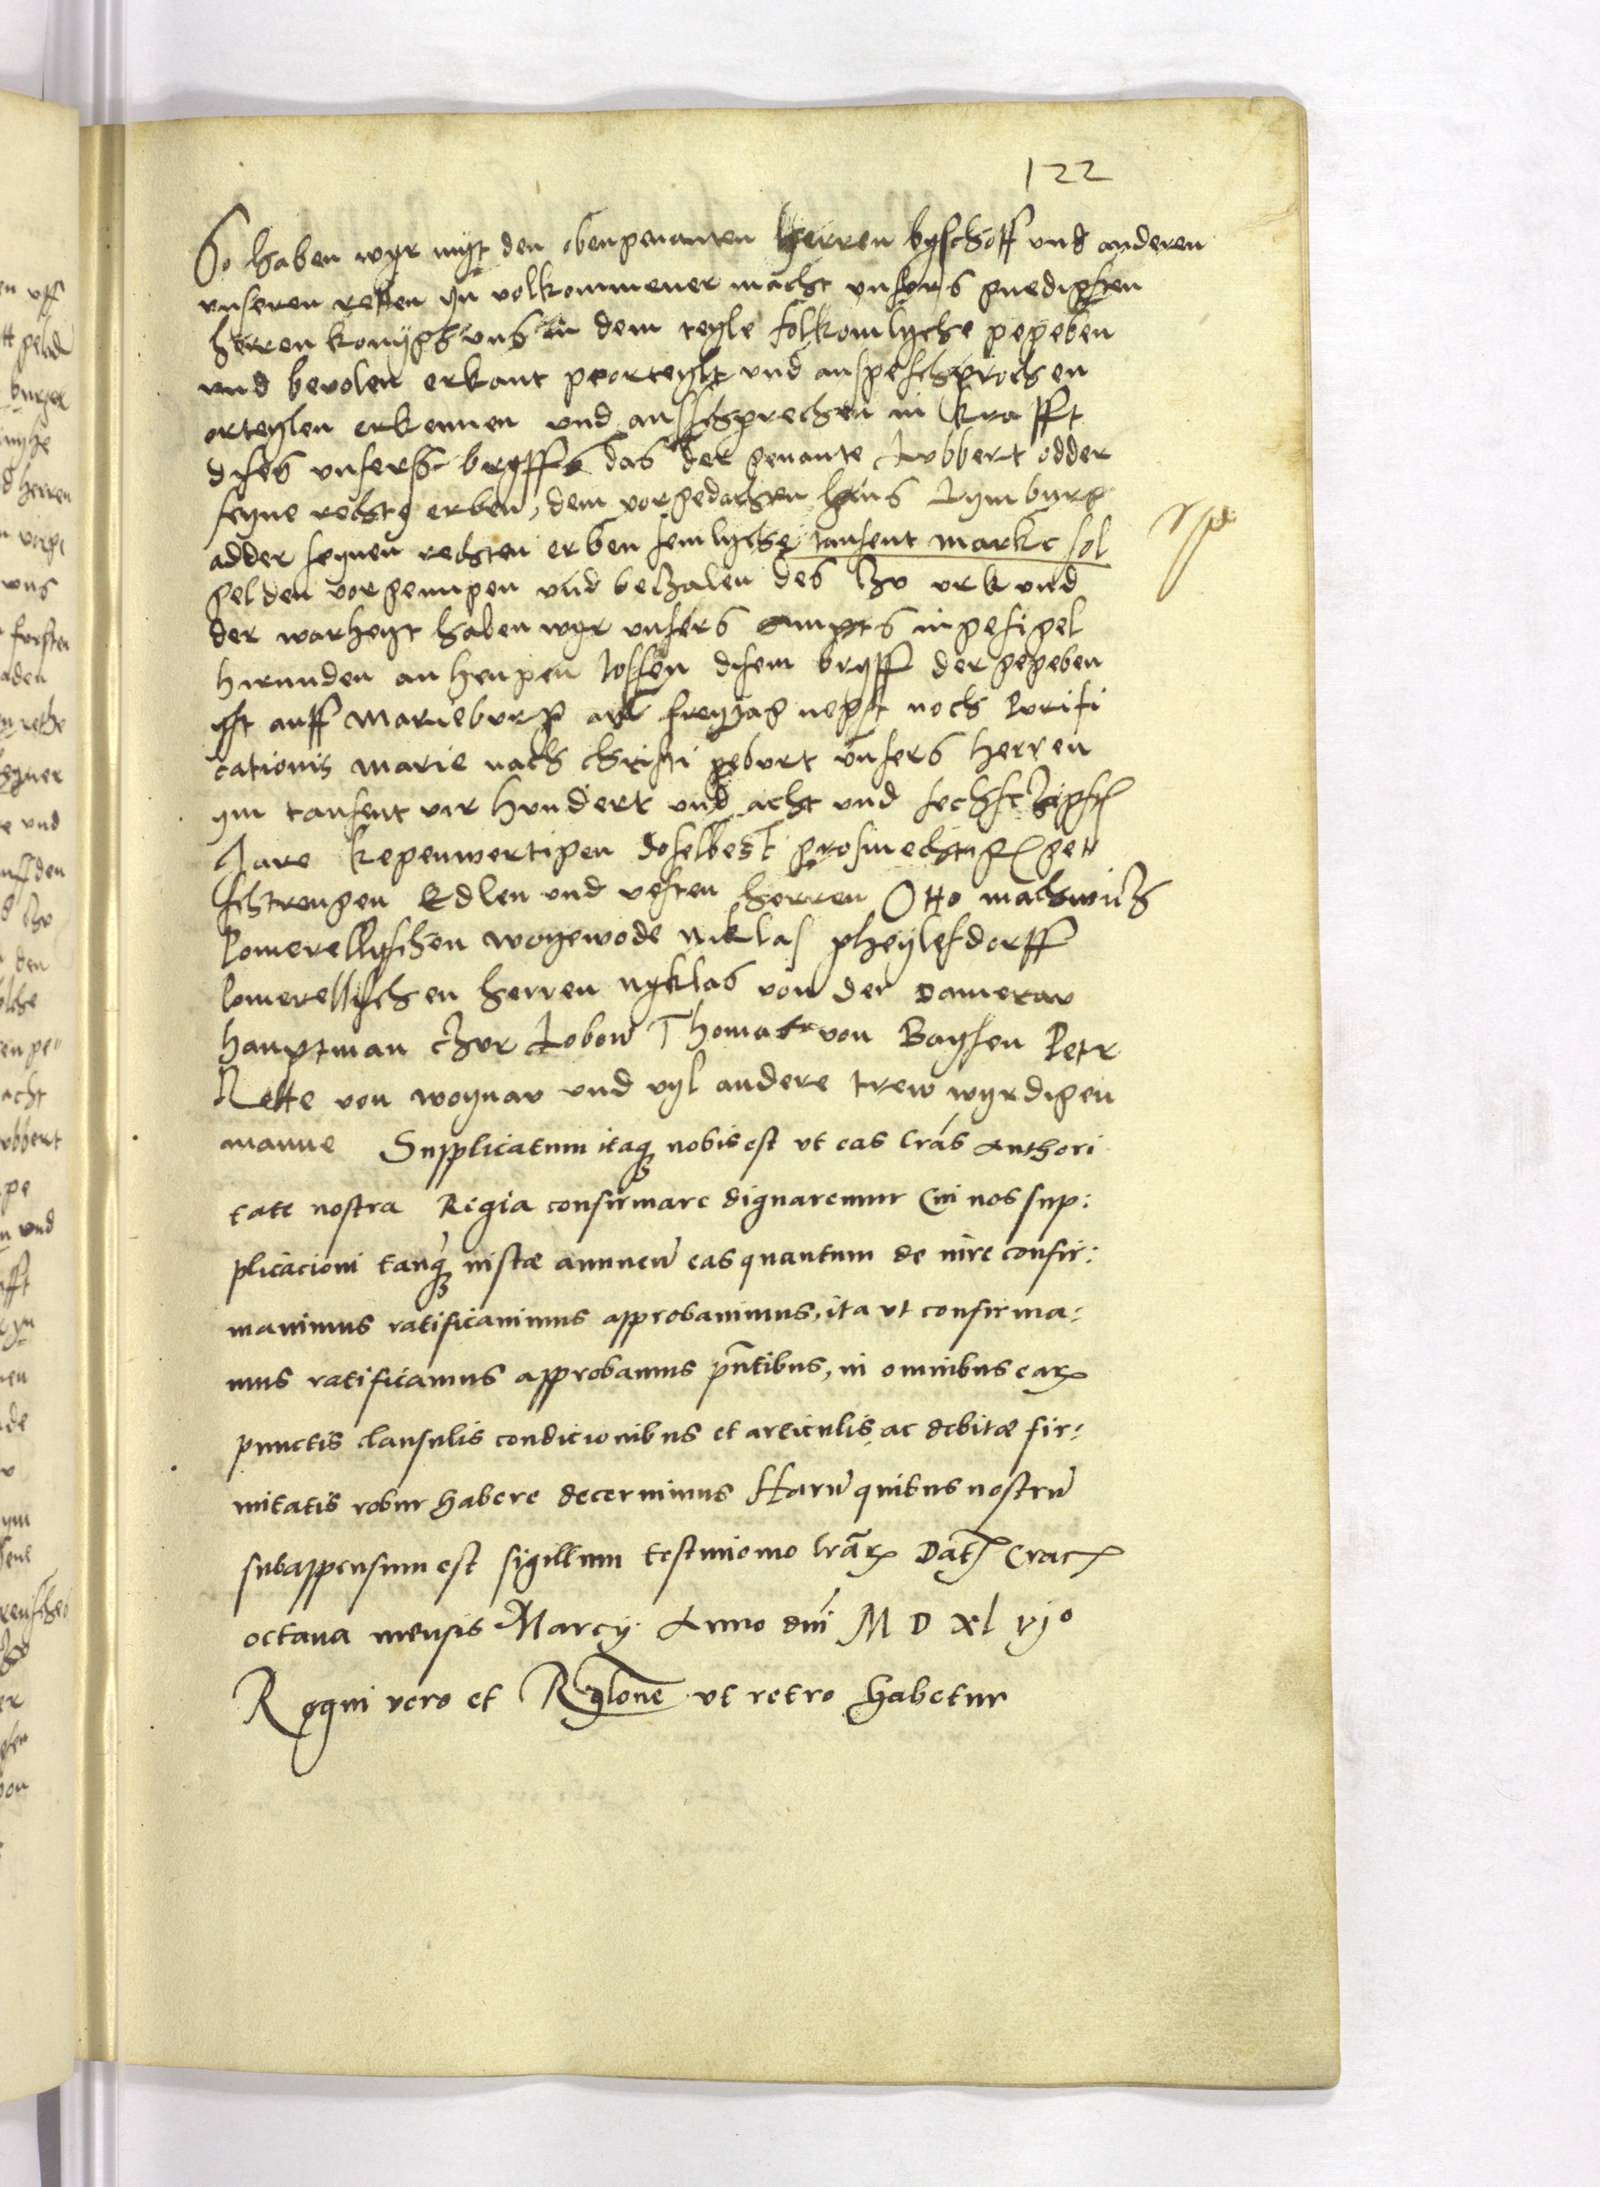 122
So haben wyr myt den obengenanten herren byschoff vnd anderen
vnseren retten yn volkommener macht vnsers gnedigsten
herren konygs vns in dem teyle folkomlyche gegeben
vnd bevolen erkant georteylt vnd ausgeschprochen
orteylen erkennen vnd ausschprechen in krafft
dises vnsers bryffs das der genante Lubbert odder
seyne rechte erben, dem vorgedachten hans Lymburg
adder seynen rechten erben semlyche tausent marke sol
gelden vorgenugen vnd beczalen des czu vrkund
der warheyt haben wyr vnsers ampts ingesigel
hirunden anhengen lossen disem bryff der gegeben
yst auff Marieburg am freytag negst noch Purifi
cationis Marie nach christi geburt vnsers herren
ym tausent vir hundert vnd acht vnd sechsczigsten
Jare kegenwertigen doselbest grosmechtigen
schtrengen Edlen vnd vesten herren Otto machwicz
Pomerellyschen woyewode niklas pheylesdorff
Pomerellyschen herren nyklas von der Damerav
hauptman czur Lobow Thomas von Baysen Petr
Rette von woynav vnd vyl andere trew wyrdigen
manne Supplicatum itaq nobis est vt eas lras Authori
tate nostra Regia confirmare dignaremur Cui nos sup:
plicacioni tanq iustæ annuen eas quantum de iure confir:
mauimus ratificauimus approbauimus, ita vt confirma:
mus ratificamus approbamus pntibus, in omnibus ear
punctis clausulis condicionibus et articulis ac debitæ fir:
mitatis robur habere decernimus Haru quibus nostru
subappensum est sigillum testimonio lrar Dat Crac
octaua mensis Marcij Anno dni M D xl vjo
Regni vero et Rylone vt retro habetur